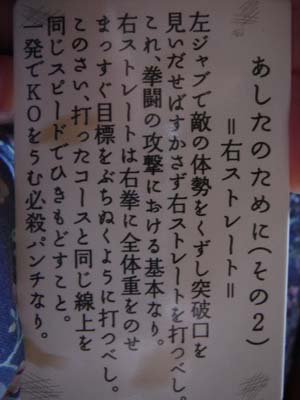 あしたのために(その2)
=右ストレート=
左ジャブで敵の体勢をくずし突破口を
見いだせばすかさず右ストレートを打つべし。
これ、拳闘の攻撃における基本なり。
右ストレートは右拳に全体重をのせ
まっすぐ目標をぶちぬくように打つべし。
このさい、打ったコースと同じ線上を
同じスピードでひきもどすこと。
一発でKOをうむ必殺パンチなり。